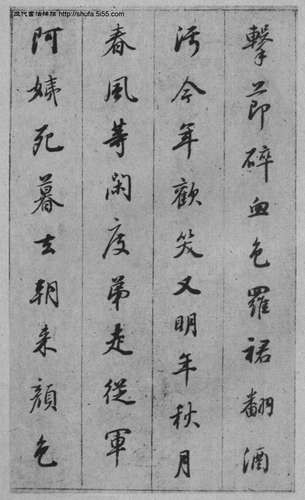 歷代書法碑帖 http://shufa.5i55.com
擊節碎血色羅裙翻酒
污今年歡笑又明年秋月
春風等閑度弟走從軍
阿姨死暮去朝來顏色